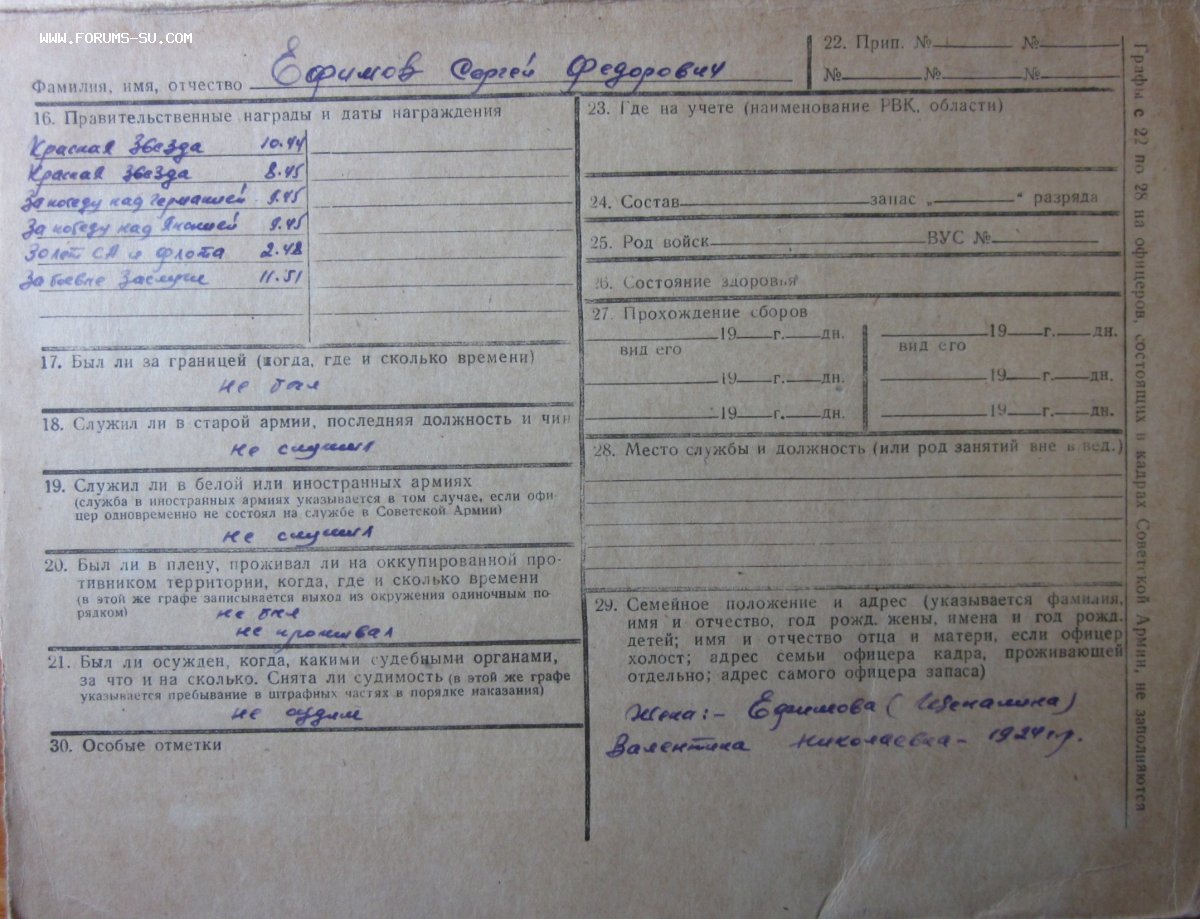 WWW.FORUMS-SU.COM
Фамилия, имя, отчество Ефимов Сергей Федорович
16. Правительственные награды и даты награждения
Красная Звезда 10.44
Красная Звезда 8.45
За победу над Германией 9.45
За победу над Японией 9.45
30 лет СА и флота 2.48
За боевые Заслуги 11.51
17. Был ли за границей (когда, где и сколько времени)
не был
18. Служил ли в старой армии, последняя должность и чин
не служил
19. Служил ли в белой или иностранных армиях
(служба в иностранных армиях указывается в том случае, если офи-
цер одновременно не состоял на службе в Советской Армии)
не служил
20. Был ли в плену, проживал ли на оккупированной про-
тивником территории, когда, где и сколько времени
(в этой же графе записывается выход из окружения одиночным по-
рядком) не был
не проживал
21. Был ли осужден, когда, какими судебными органами,
за что и на сколько. Снята ли судимость (в этой же графе
указывается пребывание в штрафных частях в порядке наказания)
не судим
30. Особые отметки
22. Прип. № №
№ № №
23. Где на учете (наименование РВК, области)
24. Состав запас „ “ разряда
25. Род войск ВУС №
26. Состояние здоровья
27. Прохождение сборов
19 г. дн. 19 г. дн.
вид его вид его
19 г. дн. 19 г. дн.
19 г. дн. 19 г. дн.
28. Место службы и должность (или род занятий вне в вед.)
29. Семейное положение и адрес (указывается фамилия,
имя и отчество, год рожд. жены, имена и год рожд.
детей; имя и отчество отца и матери, если офицер
холост; адрес семьи офицера кадра, проживающей
отдельно; адрес самого офицера запаса)
Жена:- Ефимова (
Валентина Николаевна - 1924 г.р.
Графы с 22 по 28 на офицеров, состоящих в кадрах Советской Армии, не заполняются